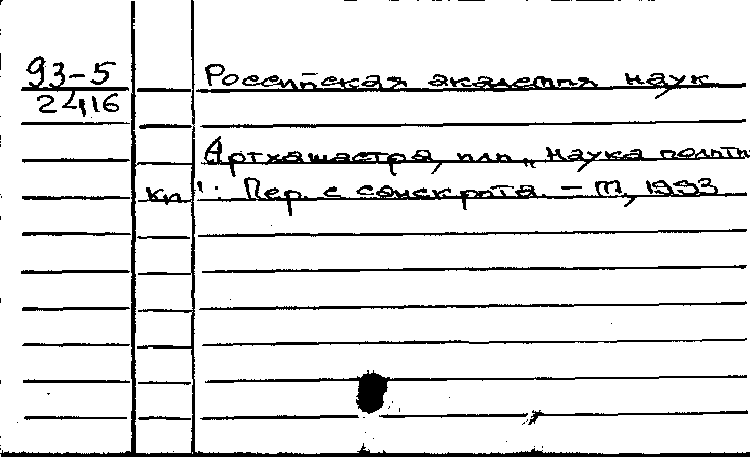 93-5
24,16
Российская академия наук
Артхашастра, или "Наука полити
ки": Пер. с санскрита. - М., 1993